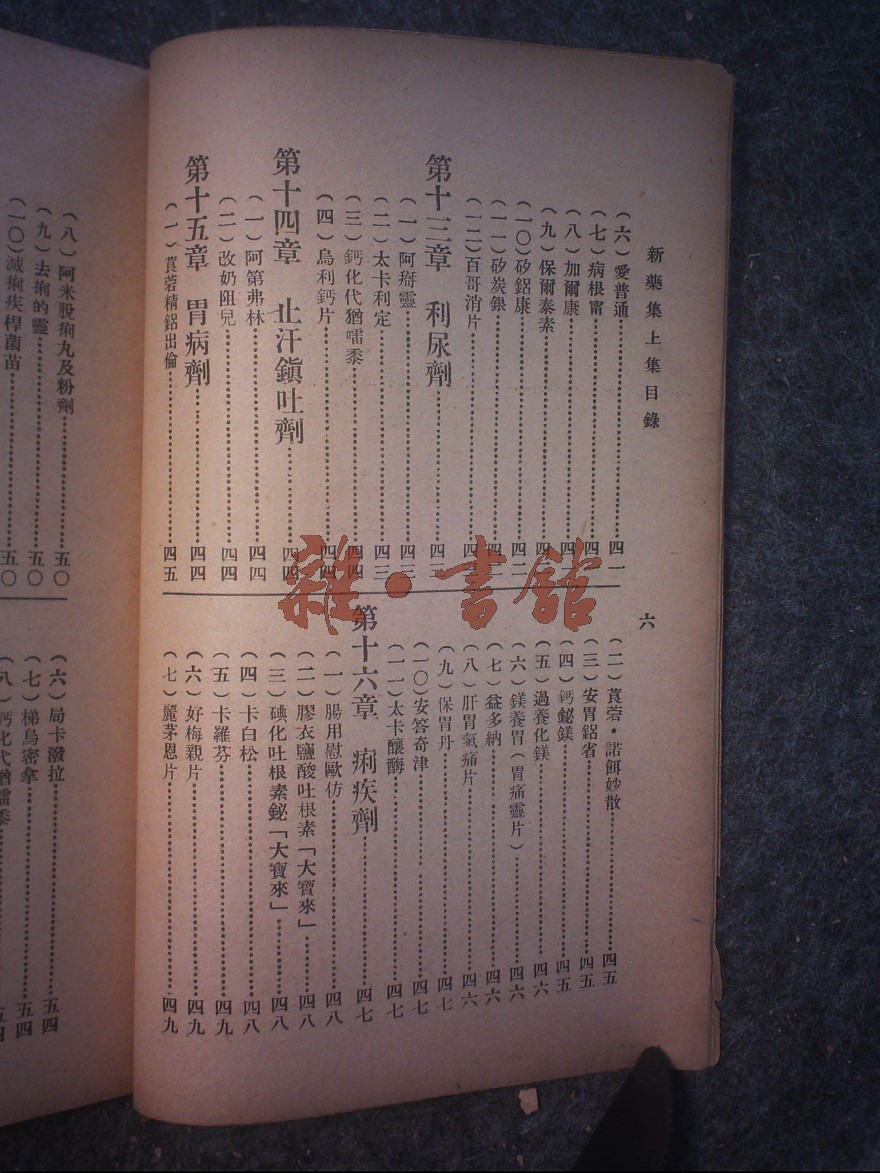 新藥集上集目錄
六
（六）愛普通……四一
（七）病根甯……四一
（八）加爾康……四一
（九）保爾泰素……四二
（一〇）矽鋁康……四二
（一一）矽炭銀……四二
（一二）百哥消片……四二
第十三章　利尿劑……四三
（一）阿搿靈……四三
（二）太卡利定……四三
（三）鈣化代猶嚅黍……四四
（四）烏利鈣片……四四
第十四章　止汗鎭吐劑……四四
（一）阿第弗林……四四
（二）改奶阻兒……四四
第十五章　胃病劑……四四
（一）莨菪精鋁出倫……四五
（二）莨菪・諾餌妙散……四五
（三）安胃鋁省……四五
（四）鈣鉍鎂……四五
（五）過養化鎂……四六
（六）鎂養胃（胃痛靈片）……四六
（七）益多納……四六
（八）肝胃氣痛片……四六
（九）保胃丹……四七
（一〇）安答奇津……四七
（一一）太卡釀酶……四七
第十六章　痢疾劑……四七
（一）腸用慰歐仿……四八
（二）膠衣鹽酸吐根素「大寶來」……四八
（三）碘化吐根素鉍「大寶來」……四八
（四）卡白松……四八
（五）卡羅芬……四九
（六）好梅親片……四九
（七）麗茅恩片……四九
（八）阿米脫痢丸及粉劑……五〇
（九）去痢的靈……五〇
（一〇）滅痢疾桿菌苗……五〇
（六）局卡潑拉……五四
（七）梯烏密拿……五四
（八）鈣化代猶嚅黍……五四
雜・書館